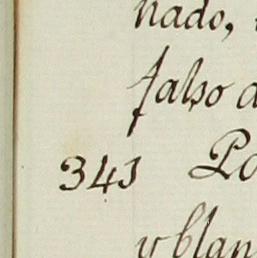 nado,
falso d
343 Po
y blan